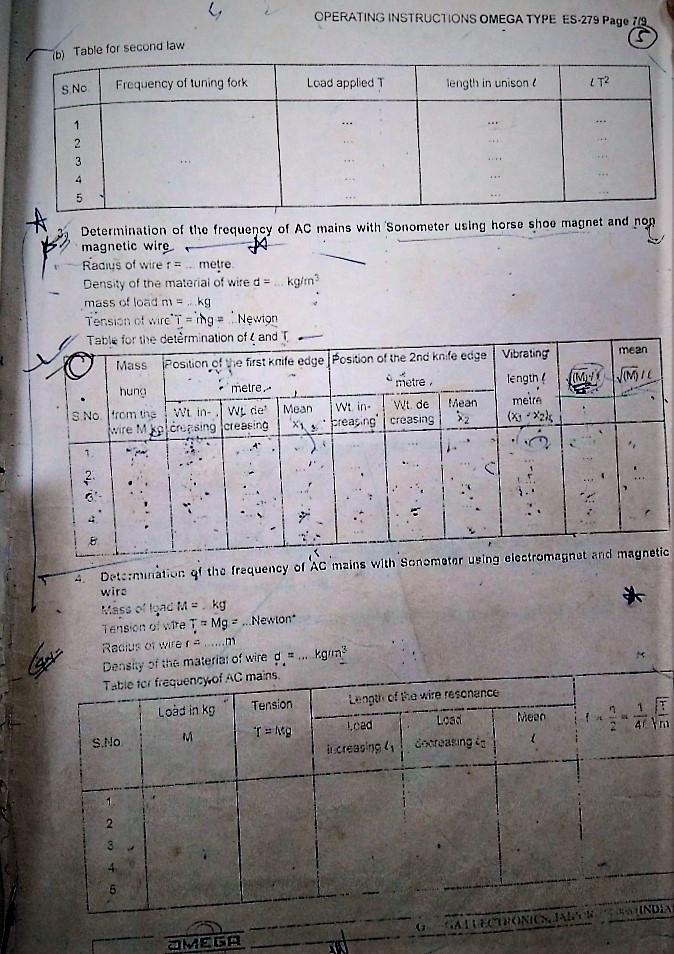 OPERATING INSTRUCTIONS OMEGA TYPE ES-279 Page 7/9
5
(b) Table for second law
S.No. Frequency of tuning fork Load applied T length in unison ℓ ℓ T²
1 ... ... ...
2 ... ... ...
3 ... ... .... ...
4 ... ... ...
5 ... ... ...
3. Determination of the frequency of AC mains with Sonometer using horse shoe magnet and non
magnetic wire
Radius of wire r = ... metre
Density of the material of wire d = ... kg/m³
mass of load m = ... kg
Tension of wire T = mg = ...Newton
Table for the determination of ℓ and T
S.No. Mass hung from the wire M kg Position of the first knife edge metre Position of the 2nd knife edge metre Vibrating length ℓ metre mean √(M)/ℓ
Wt. in-creasing Wt. de creasing Mean x₁ Wt. in-creasing Wt. de creasing Mean x₂
1.
2.
3.
4.
5.
4. Determination of the frequency of AC mains with Sonometer using electromagnet and magnetic
wire
Mass of load M = . kg
Tension of wire T = Mg = ...Newton
Radius of wire r = ......m
Density of the material of wire d = .... kg/m³
Table for frequency of AC mains
S.No. Load in kg M Tension T = Mg Length of the wire resonance f = n/2 = 1/4ℓ √T/m
Load increasing ℓ₁ Load decreasing ℓ₂ Mean ℓ
1
2
3
4
5
OMEGA